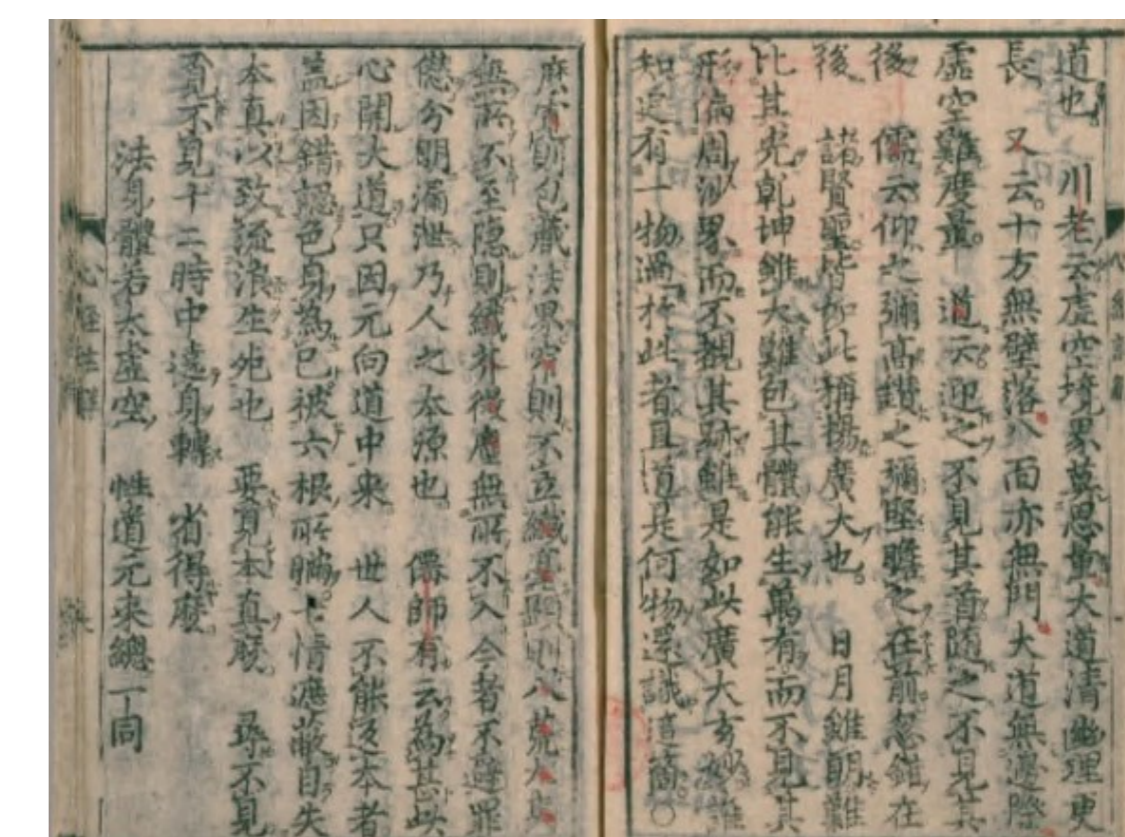 道也 川老云虛空境界莫思量大道清幽理更
長 又云十方無壁落八面亦無門大道無邊際
虛空難度量 道云迎之不見其首隨之不見其
後 儒云仰之彌高鑽之彌堅瞻之在前忽錯在
後 諸賢聖皆如此稱揚廣大也 日月雖朝難
比其光乾坤雖大難包其體能生萬有而不見其
形徧周沙界而不覩其跡雖是如此廣大玄妙誰
知遠有一物過於此者且道是何物還識這箇〇
麼有則包藏法界空則不立纖毫顯則八荒
無所不至隱則纖芥微塵無所不入今者不避罪
愆分明漏泄乃人之本源也 儒師有云為甚此
心開大道只因元向道中來 世人不能返本者
蓋因錯認色身為已被六根所瞞七情遮蔽自失
本真以致流浪生死也 要見本真麼 尋不見
覔不見十二時中遠身轉 省得麼
法身體若太虛空 性道元來總一同